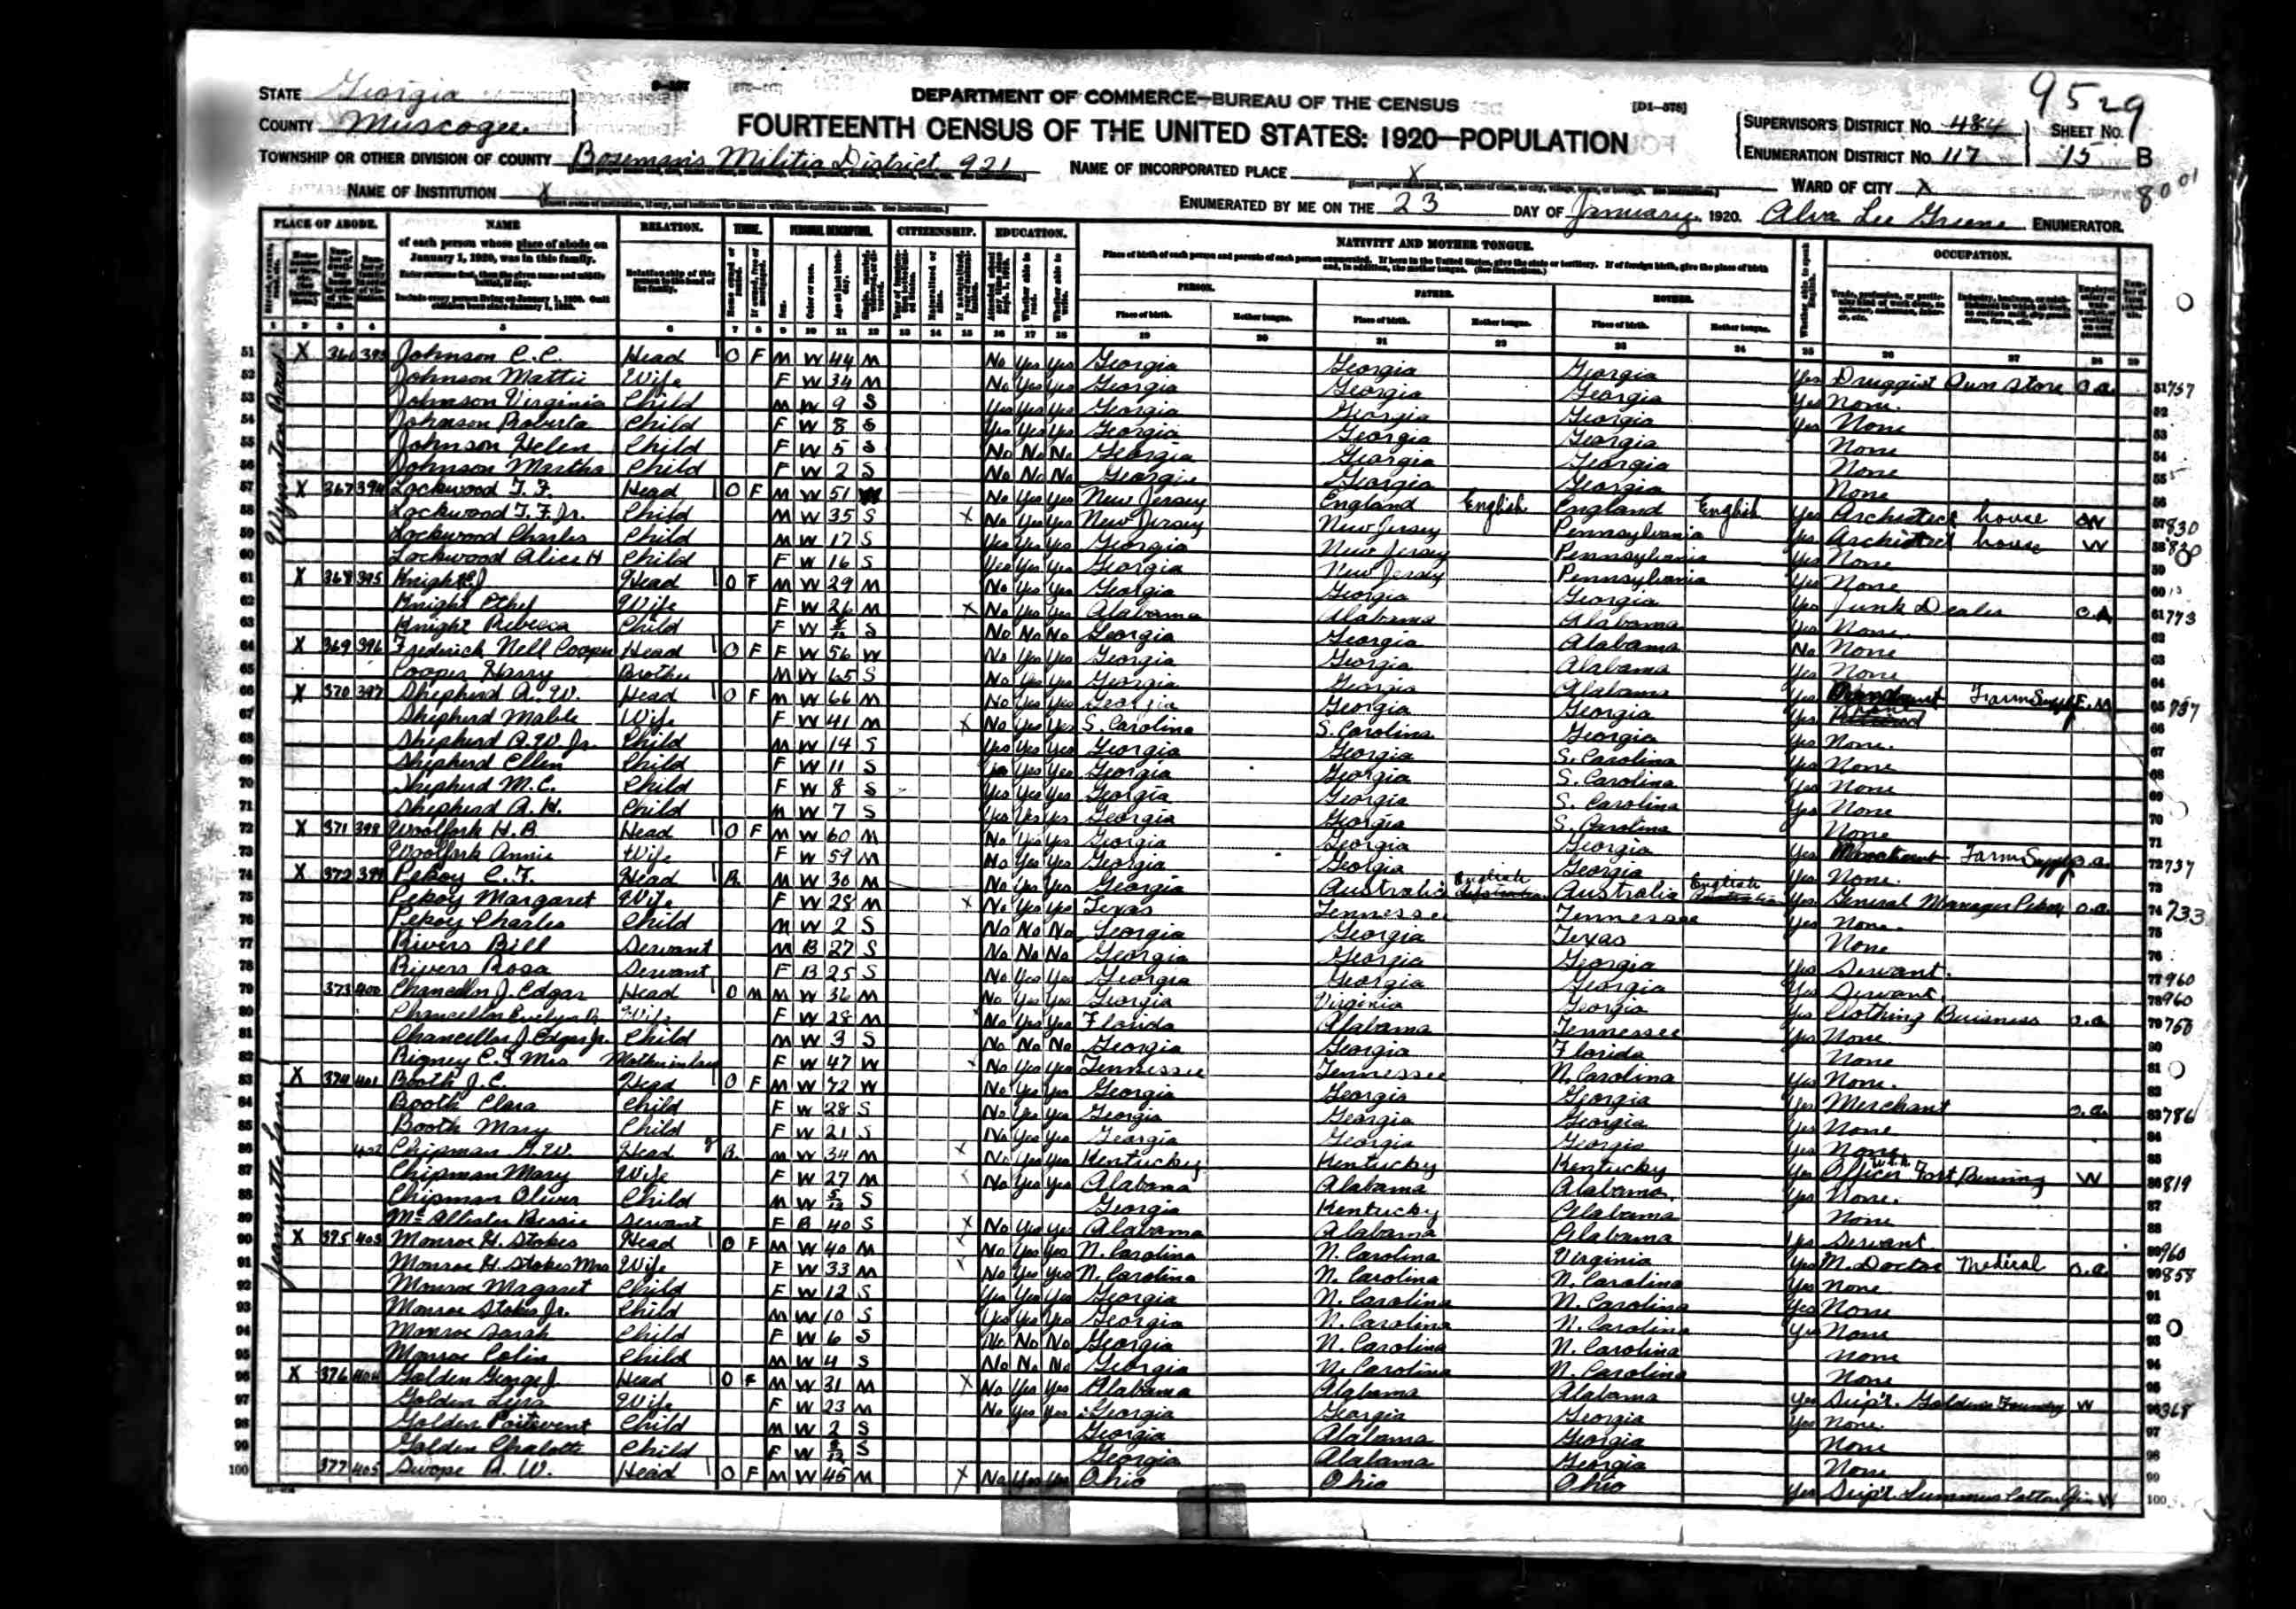 STATE Georgia
COUNTY Muscogee
DEPARTMENT OF COMMERCE—BUREAU OF THE CENSUS
[D1-578]
9529
FOURTEENTH CENSUS OF THE UNITED STATES: 1920—POPULATION
SUPERVISOR'S DISTRICT No. 484 SHEET No.
ENUMERATION DISTRICT No. 117 15 B
8001
TOWNSHIP OR OTHER DIVISION OF COUNTY Boseman's Militia District 921 NAME OF INCORPORATED PLACE X
NAME OF INSTITUTION X WARD OF CITY X
ENUMERATED BY ME ON THE 23 DAY OF January, 1920. Alva Lee Greene ENUMERATOR.
PLACE OF ABODE. NAME RELATION. TENURE. PERSONAL DESCRIPTION. CITIZENSHIP. EDUCATION. NATIVITY AND MOTHER TONGUE. OCCUPATION.
of each person whose place of abode on January 1, 1920, was in this family.
Enter surname first, then the given name and middle initial, if any.
Include every person living on January 1, 1920. Omit children born since January 1, 1920.
Relationship of this person to the head of the family.
PERSON. FATHER. MOTHER.
Place of birth. Mother tongue. Place of birth. Mother tongue. Place of birth. Mother tongue.
1 2 3 4 5 6 7 8 9 10 11 12 13 14 15 16 17 18 19 20 21 22 23 24 25 26 27 28 29
Wynnton Road
51 X 366 393 Johnson C. C. Head O F M W 44 M No Yes Yes Georgia Georgia Georgia Yes Druggist Own Store O.A. 757
52 Johnson Mattie Wife F W 34 M No Yes Yes Georgia Georgia Georgia Yes None
53 Johnson Virginia Child M W 9 S Yes Yes Yes Georgia Georgia Georgia Yes None
54 Johnson Roberta Child F W 8 S Yes Yes Yes Georgia Georgia Georgia None
55 Johnson Helen Child F W 5 S No No No Georgia Georgia Georgia None
56 Johnson Martha Child F W 2 S No No No Georgia Georgia Georgia None
57 X 367 394 Lockwood T. F. Head O F M W 51 W No Yes Yes New Jersey England English England English Yes Architect house 830
58 Lockwood T. F. Jr. Child M W 35 S X No Yes Yes New Jersey New Jersey Pennsylvania Yes Architect house W 830
59 Lockwood Charles Child M W 17 S Yes Yes Yes Georgia New Jersey Pennsylvania Yes None
60 Lockwood Alice H Child F W 16 S Yes Yes Yes Georgia New Jersey Pennsylvania Yes None
61 X 368 395 Knight Head O F M W 29 M No Yes Yes Georgia Georgia Georgia Yes Junk Dealer O.A. 773
62 Knight Ethel Wife F W 26 M X No Yes Yes Alabama Alabama Alabama Yes None
63 Knight Rebecca Child F W S No No No Georgia Georgia Alabama No None
64 X 369 396 Frederick Nell Cooper Head O F F W 56 W No Yes Yes Georgia Georgia Alabama Yes None
65 Cooper Harry Brother M W 65 S No Yes Yes Georgia Georgia Alabama Yes Farm Supply 737
66 X 370 397 Shepherd A. W. Head O F M W 66 M No Yes Yes Georgia Georgia Georgia Yes None
67 Shepherd Mable Wife F W 41 M X No Yes Yes S. Carolina S. Carolina Georgia Yes None
68 Shepherd A. W. Jr. Child M W 14 S Yes Yes Yes Georgia Georgia S. Carolina Yes None
69 Shepherd Ellen Child F W 11 S Yes Yes Yes Georgia Georgia S. Carolina Yes None
70 Shepherd M. C. Child F W 8 S Yes Yes Yes Georgia Georgia S. Carolina Yes None
71 Shepherd A. H. Child M W 7 S Yes Yes Yes Georgia Georgia S. Carolina None
72 X 371 398 Woolfork H. B. Head O F M W 60 M No Yes Yes Georgia Georgia Georgia Yes Merchant Farm Supply O.A. 737
73 Woolfork Annie Wife F W 59 M No Yes Yes Georgia Georgia Georgia Yes None
74 X 372 399 Pekoy C. F. Head R M W 30 M No Yes Yes Georgia Australia English Australia English Yes General Manager Pekoy O.A. 733
75 Pekoy Margaret Wife F W 28 M X No Yes Yes Texas Tennessee Tennessee Yes None
76 Pekoy Charles Child M W 2 S No No No Georgia Georgia Texas None
77 Rivers Bill Servant M B 27 S No No No Georgia Georgia Georgia Yes Servant 960
78 Rivers Rosa Servant F B 25 S No Yes Yes Georgia Georgia Georgia Yes Servant 960
79 373 400 Chancellor J. Edgar Head O M M W 36 M No Yes Yes Georgia Virginia Georgia Yes Clothing Buisness O.A. 758
80 Chancellor Evelyn Wife F W 28 M No Yes Yes Florida Alabama Tennessee Yes None
81 Chancellor J. Edgar Jr. Child M W 3 S No No No Georgia Georgia Florida None
82 Rigney C. S. Mrs Mother in law F W 47 W No Yes Yes Tennessee Tennessee N. Carolina Yes None
Jeannette Lane
83 X 374 401 Booth J. C. Head O F M W 72 W No Yes Yes Georgia Georgia Georgia Yes Merchant O.A. 786
84 Booth Clara Child F W 28 S No Yes Yes Georgia Georgia Georgia Yes None
85 Booth Mary Child F W 21 S No Yes Yes Georgia Georgia Georgia Yes None
86 402 Chipman G. W. Head R M W 34 M X No Yes Yes Kentucky Kentucky Kentucky Yes Officer Fort Benning W 819
87 Chipman Mary Wife F W 27 M No Yes Yes Alabama Alabama Alabama Yes None
88 Chipman Oliver Child M W S Georgia Kentucky Alabama None
89 McAllister Bessie Servant F B 40 S X No Yes Yes Alabama Alabama Alabama Yes Servant 960
90 X 375 403 Monroe H. Stokes Head O F M W 40 M No Yes Yes N. Carolina N. Carolina Virginia Yes M. Doctor Medical O.A. 858
91 Monroe H. Stokes Mrs Wife F W 33 M No Yes Yes N. Carolina N. Carolina N. Carolina Yes None
92 Monroe Margaret Child F W 12 S Yes Yes Yes Georgia N. Carolina N. Carolina Yes None
93 Monroe Stokes Jr. Child M W 10 S Yes Yes Yes Georgia N. Carolina N. Carolina Yes None
94 Monroe Sarah Child F W 6 S No No No Georgia N. Carolina N. Carolina None
95 Monroe Colin Child M W 4 S No No No Georgia N. Carolina N. Carolina None
96 X 376 404 Golden George J. Head O F M W 31 M X No Yes Yes Alabama Alabama Alabama Yes Sup't. Goldens Foundry W 368
97 Golden Wife F W 23 M No Yes Yes Georgia Georgia Georgia Yes None
98 Golden Poitevent Child M W 2 S Georgia Alabama Georgia None
99 Golden Chalotte Child F W S Georgia Alabama Georgia None
100 377 405 Swope B. W. Head O F M W 45 M X No Yes Yes Ohio Ohio Ohio Yes Sup't. Lummus Cotton Gin W